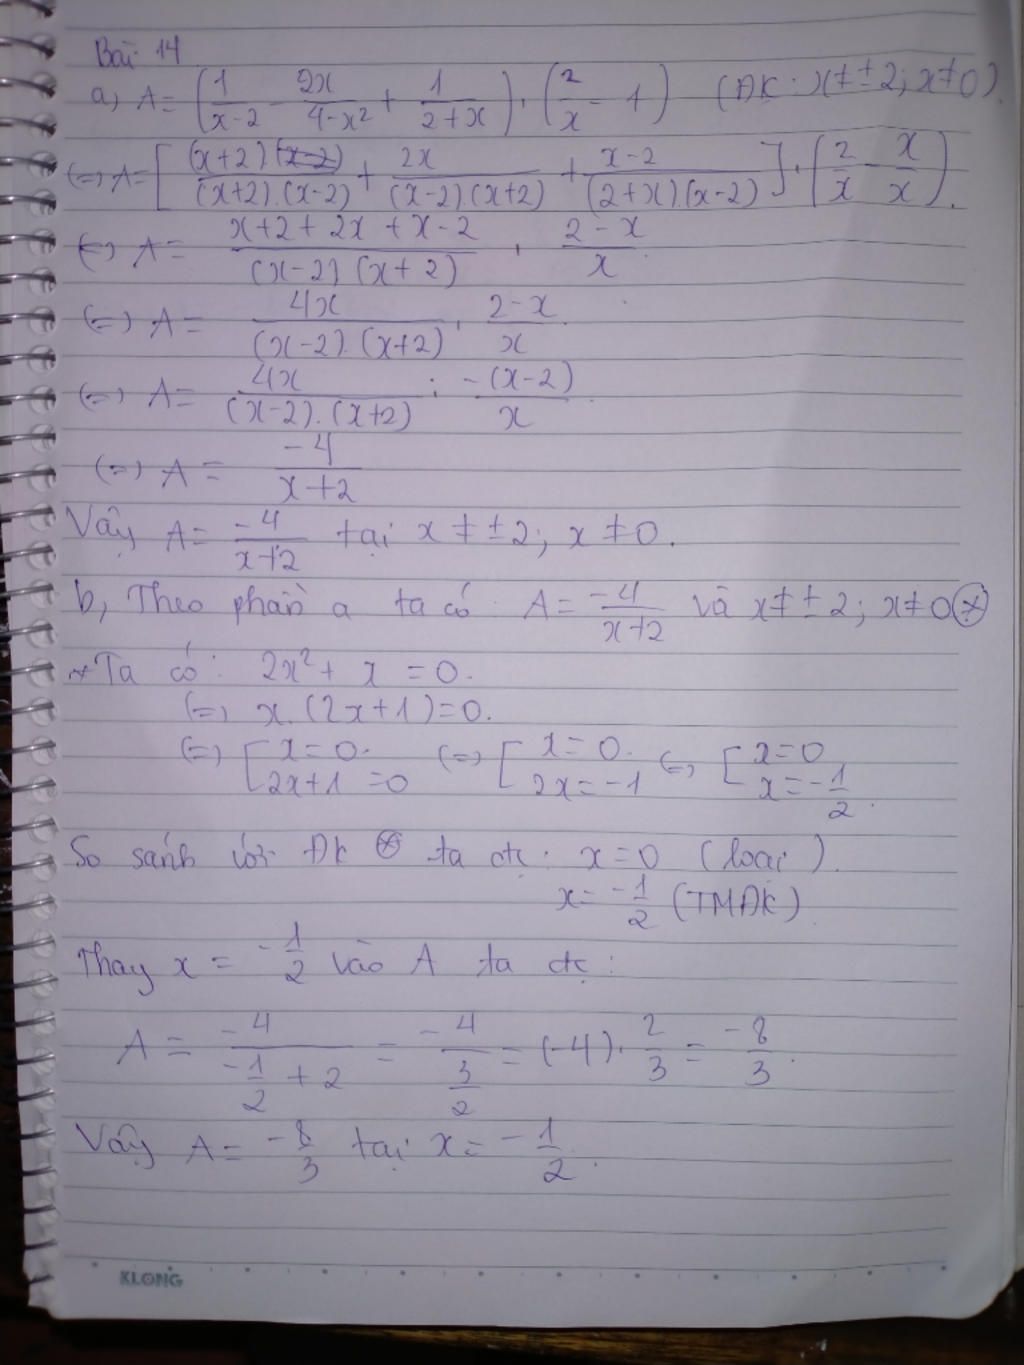 Bài 14
a, A = (1/(x-2) - 2x/(4-x²) + 1/(2+x)) . (2/x - 1) (ĐK: x ≠ ±2; x ≠ 0).
(=) A = [(x+2).(x-2)/((x+2).(x-2)) + 2x/((x-2).(x+2)) + (x-2)/((2+x).(x-2))] . (2/x - x/x).
(=) A = (x+2+2x+x-2)/((x-2)(x+2)) . (2-x)/x.
(=) A = 4x/((x-2).(x+2)) . (2-x)/x.
(=) A = 4x/((x-2).(x+2)) . -(x-2)/x.
(=) A = -4/(x+2)
Vậy A = -4/(x+2) tại x ≠ ±2; x ≠ 0.
b, Theo phần a ta có: A = -4/(x+2) và x ≠ ±2; x ≠ 0 (*)
* Ta có: 2x² + x = 0.
(=) x.(2x+1)=0.
(=) [x=0. 2x+1=0 (=) [x=0. 2x=-1 (=) [x=0 x=-1/2.
So sánh với ĐK (*) ta đc: x=0 (loại).
x = -1/2 (TMĐK)
Thay x = -1/2 vào A ta đc:
A = -4/(-1/2 + 2) = -4/(3/2) = (-4).2/3 = -8/3.
Vậy A = -8/3 tại x = -1/2.
KLONG